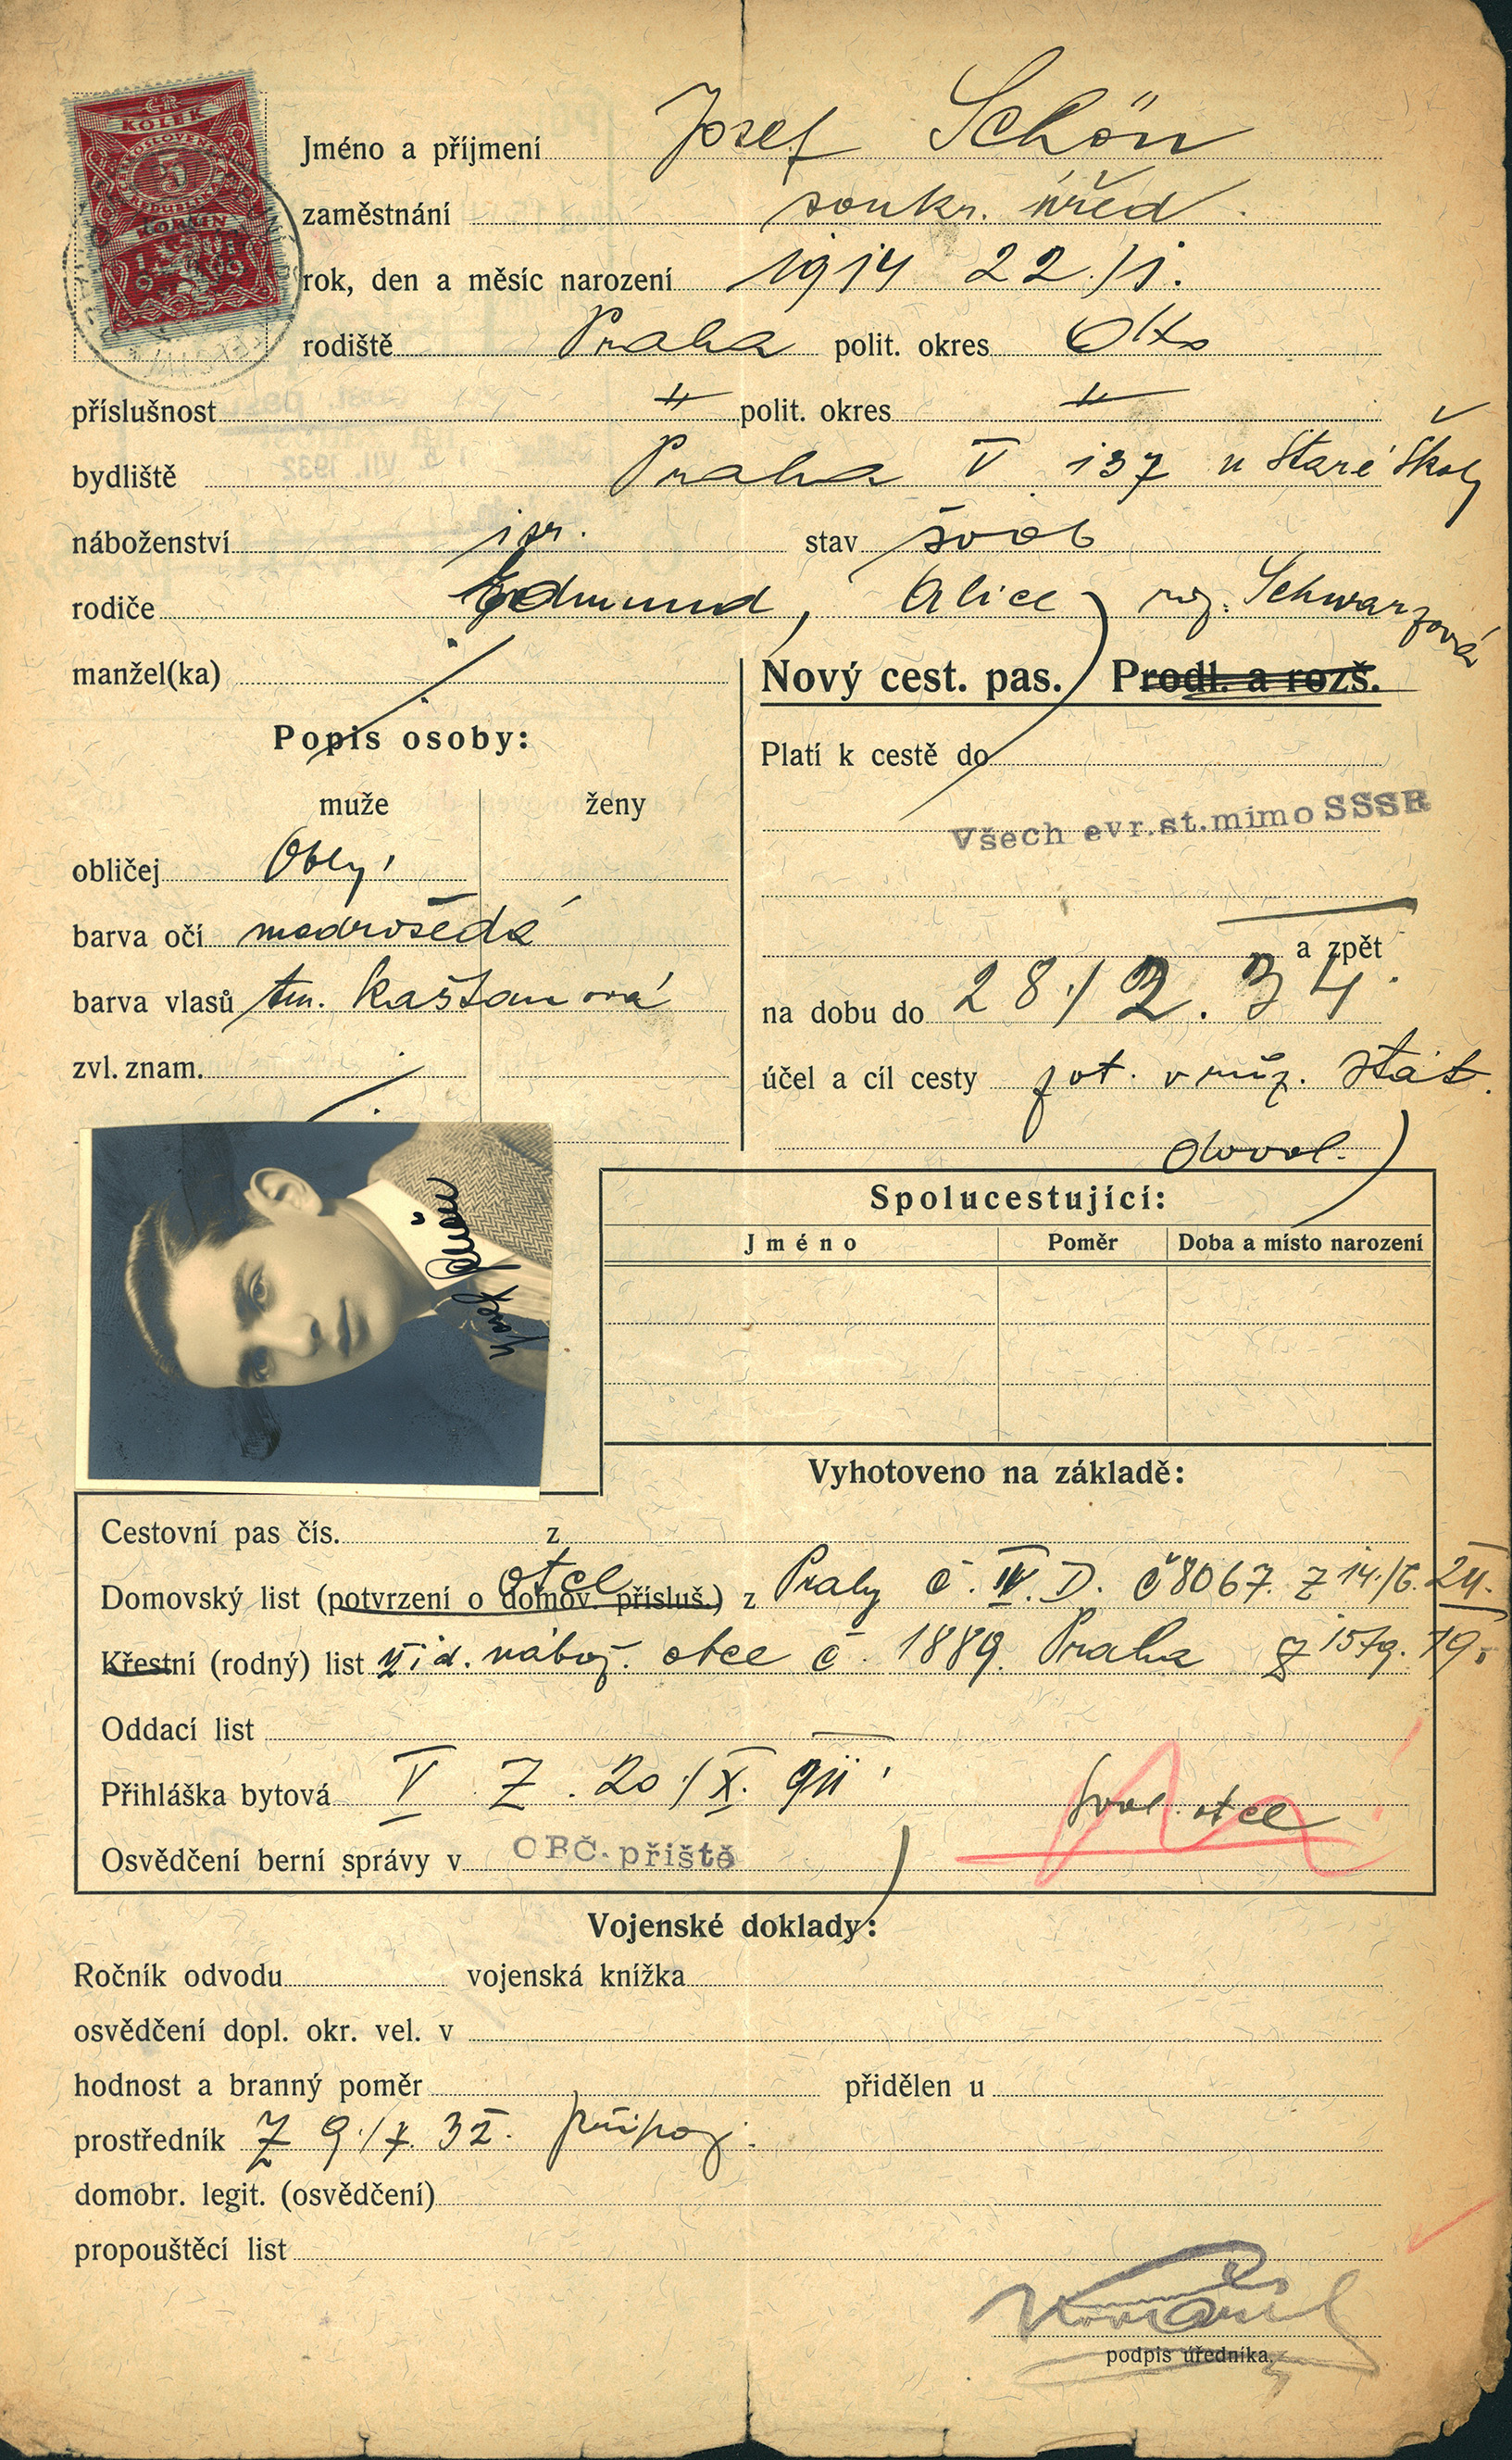 KOLEK
5
KORUN
1919
Jméno a příjmení Josef Schön
zaměstnání soukr. úřed.
rok, den a měsíc narození 1914 22./1.
rodiště Praha polit. okres
příslušnost " polit. okres "
bydliště Praha V 137 u Staré školy
náboženství isr. stav svob
rodiče Edmund, Alice roz. Schwarzová
manžel(ka)
Nový cest. pas. Prodl. a rozš.
Popis osoby:
Platí k cestě do
muže ženy
Všech evr.st.mimo SSSR
obličej Oblý
barva očí modrošedá
a zpět
barva vlasů tm. kaštanová
na dobu do 28./2. 34.
zvl. znam.
účel a cíl cesty pot. v růz. stát.
dovol.
Josef Schön
Spolucestující:
Jméno Poměr Doba a místo narození
Vyhotoveno na základě:
Cestovní pas čís. z
otce
Domovský list (potvrzení o domov. přísluš.) z Prahy č. IV. D. č 8067. z 14./6. 24.
Křestní (rodný) list žid. nábož. obce č. 1889. Praha z 15./9. 19.
Oddací list
Přihláška bytová V Z. 20./X.
svol. otce
Osvědčení berní správy v OBČ. příště
Vojenské doklady:
Ročník odvodu vojenská knížka
osvědčení dopl. okr. vel. v
hodnost a branný poměr přidělen u
prostředník Z 9./X. 32. připoj.
domobr. legit. (osvědčení)
propouštěcí list
podpis úředníka.